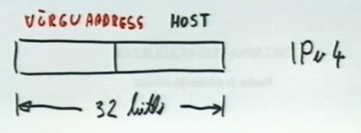 VÕRGUADDRESS HOST
IPv4
32 bitti